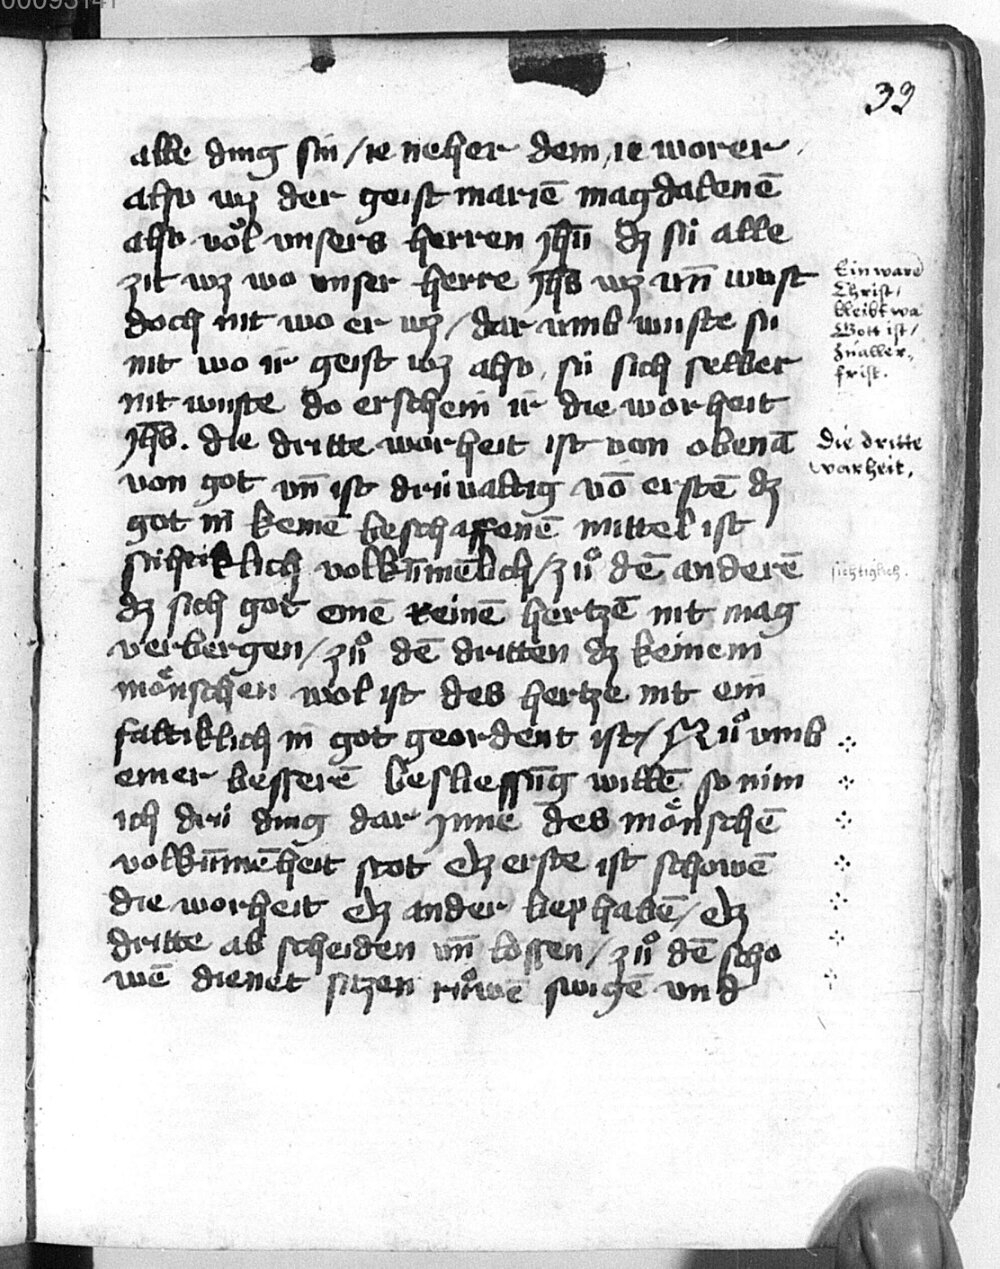 33
alle ding sin / ie neher dem, ie worer
also wz der geist mariē magdalenē
also vol unsers herren jhū dz sü alle
zit wz wo unser herre jhs wz uñ wust
doch nit wo er wz / dar umb wuste sü
nit wo ir geist wz also, sü sich selber
nit wuste do erschein ir die worheit
jhs. die dritte worheit ist von obenā
von got vñ ist drivaltig vō erstē dz
got in keinē beschaffenē mittel ist
volkūmēlich / zuͦ dē anderē
dz sich got einē reinē hertzē nit mag
verbergen / zuͦ dē dritten dz keinem
mönschen wol ist des hertze nit ein
faltiklich in got geordent ist / Nuͦ umb
einer besserē besliessūg willē so nim
ich drü ding dar jnne des mönschē
volkūmēheit stot dz erste ist schowē
die worheit dz ander liep habē / dz
dritte ab scheiden uñ lossen / zuͦ dē scho
wē dienet sitzen ruͦwē swigē und
Ein ware
Christ /
bleibt wa
Gott ist /
Zu aller
frist.
Die dritte
warheit.
sichtiglich.